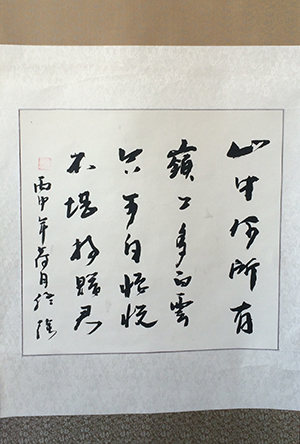 山中何所有
嶺上多白雲
只可自怡悦
不堪持贈君
丙申年荷月